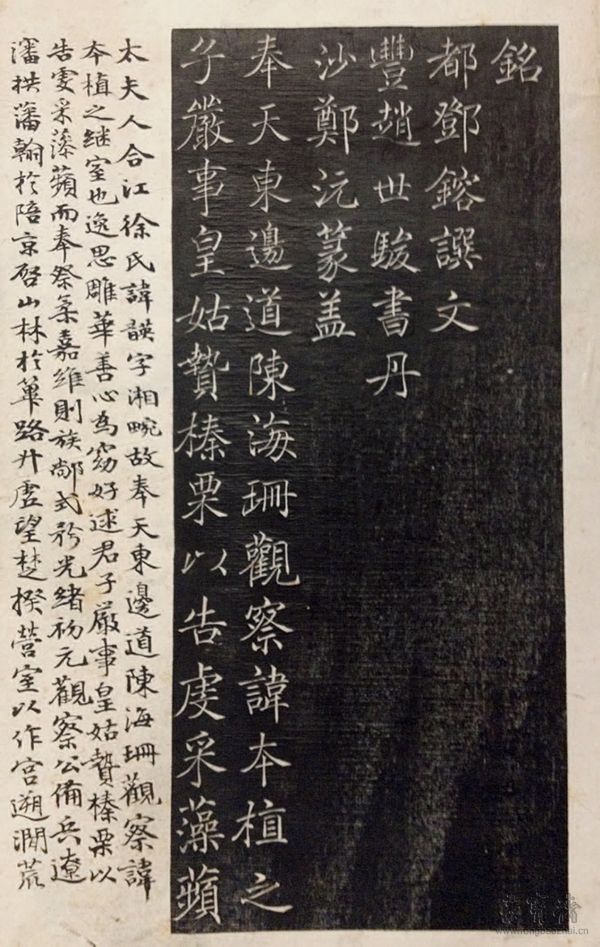 銘
都鄧鎔譔文
豐趙世駿書丹
沙鄭沅篆盖
奉天東邊道陳海珊觀察諱本植之
子嚴事皇姑贄榛栗以告虔采藻蘋
太夫人合江徐氏諱諆字湘畹故奉天東邊道陳海珊觀察諱
本植之継室也逸思雕華善心為窈好逑君子嚴事皇姑贄榛栗以
告虔采藻蘋而奉祭柔嘉維則族鄰式矜光緒初元觀察公備兵遼
瀋拱瀋翰於陪京啓山林於篳路升虛望楚揆營室以作宮遡澗荒
www.rongbaozhai.cn